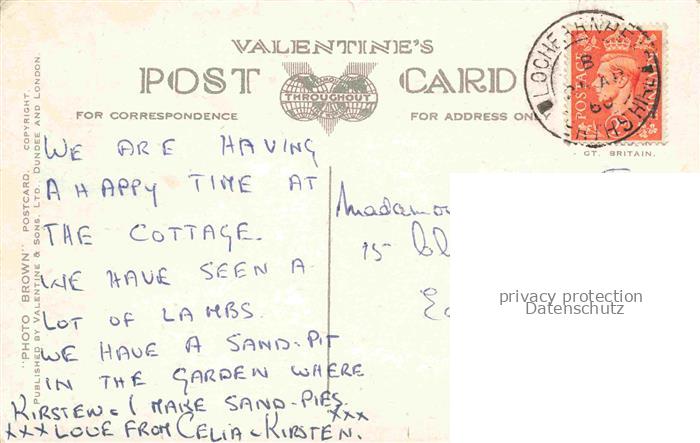 VALENTINE'S
POST CARD
THROUGHOUT
FOR CORRESPONDENCE
FOR ADDRESS ONLY
GT. BRITAIN.
POSTAGE
"PHOTO BROWN" POSTCARD. COPYRIGHT.
PUBLISHED BY VALENTINE & SONS, LTD., DUNDEE AND LONDON.
WE ARE HAVING
A HAPPY TIME AT
THE COTTAGE.
WE HAVE SEEN A
LOT OF LAMBS.
WE HAVE A SAND-PIT
IN THE GARDEN WHERE
KIRSTEN & I MAKE SAND-PIES.
xxx
xxx LOVE FROM CELIA & KIRSTEN.
15
privacy protection
Datenschutz